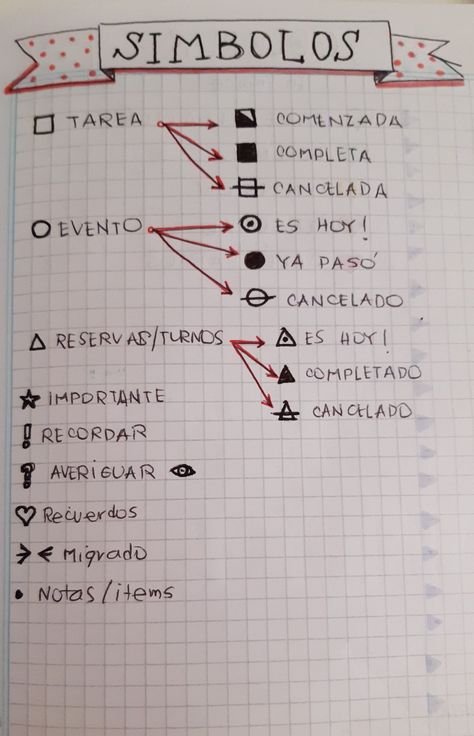 SIMBOLOS
TAREA
COMENZADA
COMPLETA
CANCELADA
EVENTO
ES HOY!
YA PASÓ
CANCELADO
RESERVAS/TURNOS
ES HOY!
COMPLETADO
CANCELADO
IMPORTANTE
! RECORDAR
? AVERIGUAR
Recuerdos
Migrado
• Notas/items